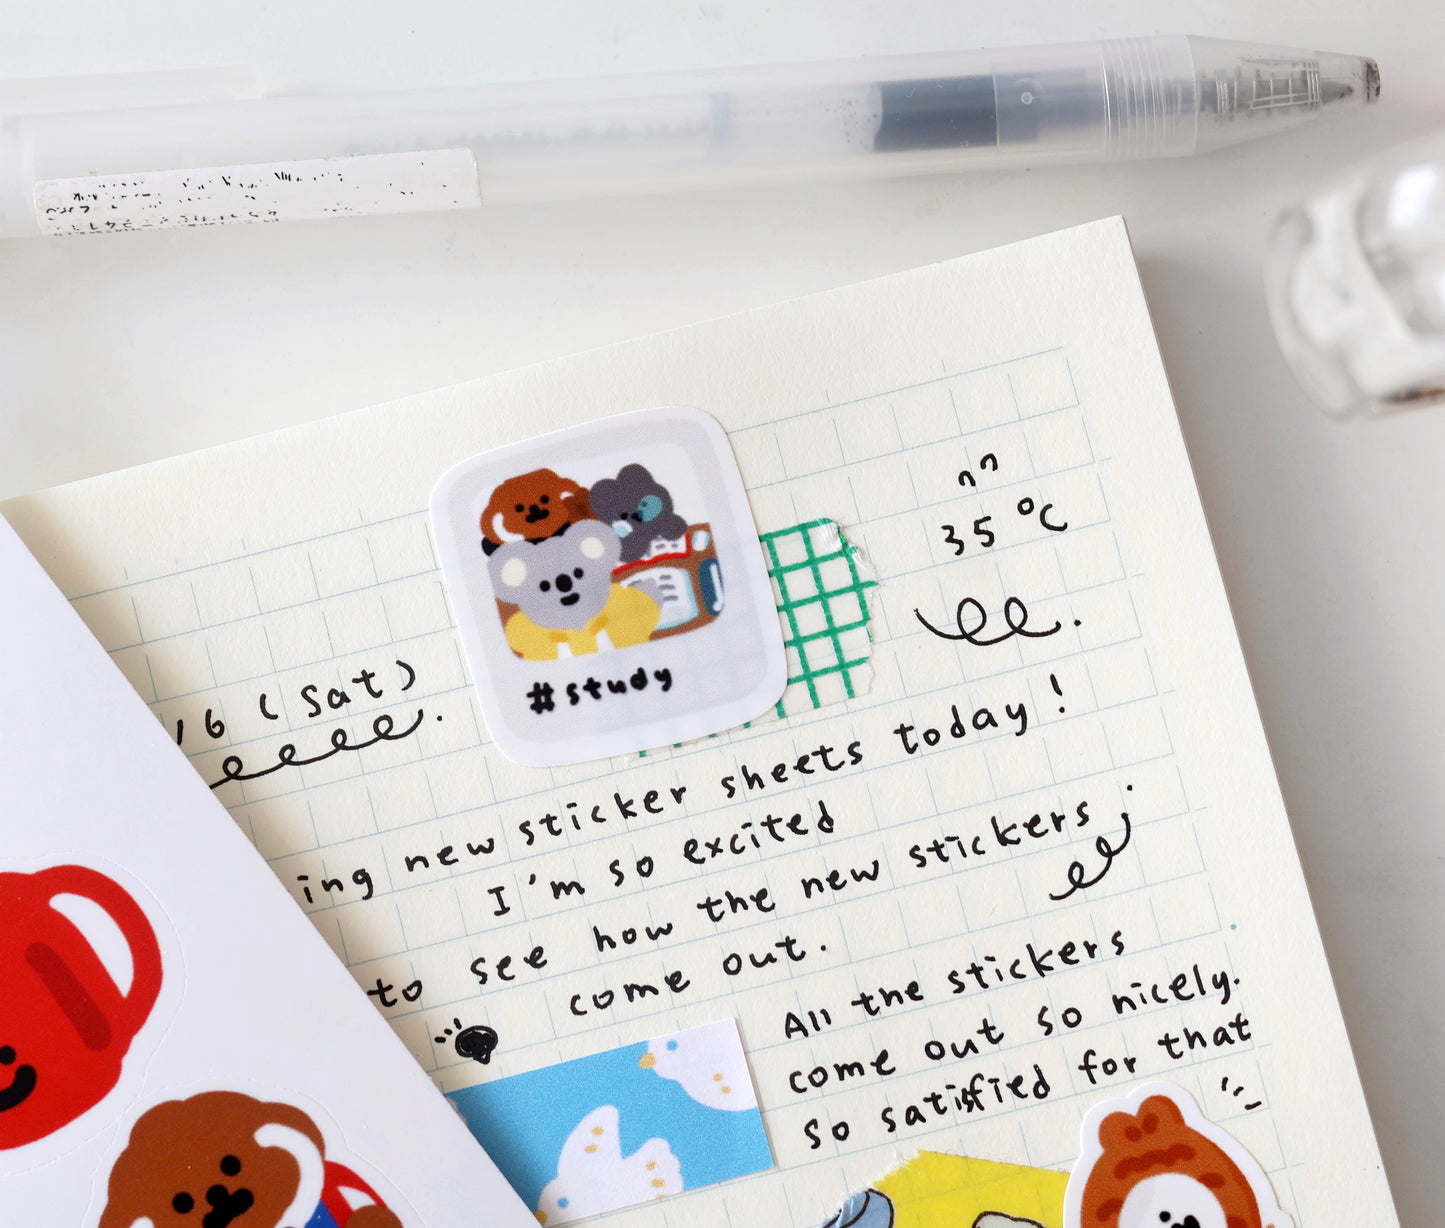 35 °C
16 (Sat)
#study
ing new sticker sheets today!
I'm so excited
to see how the new stickers
come out.
All the stickers
come out so nicely.
so satisfied for that